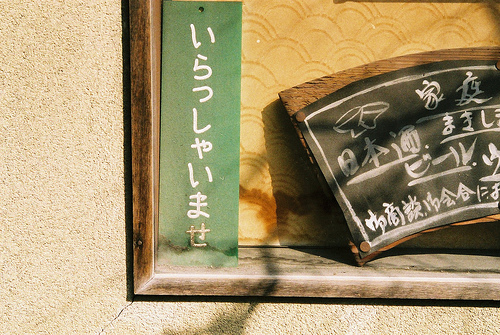 いらっしゃいませ
家庭
まきし
日本酒
ビール
御商談、御会合に